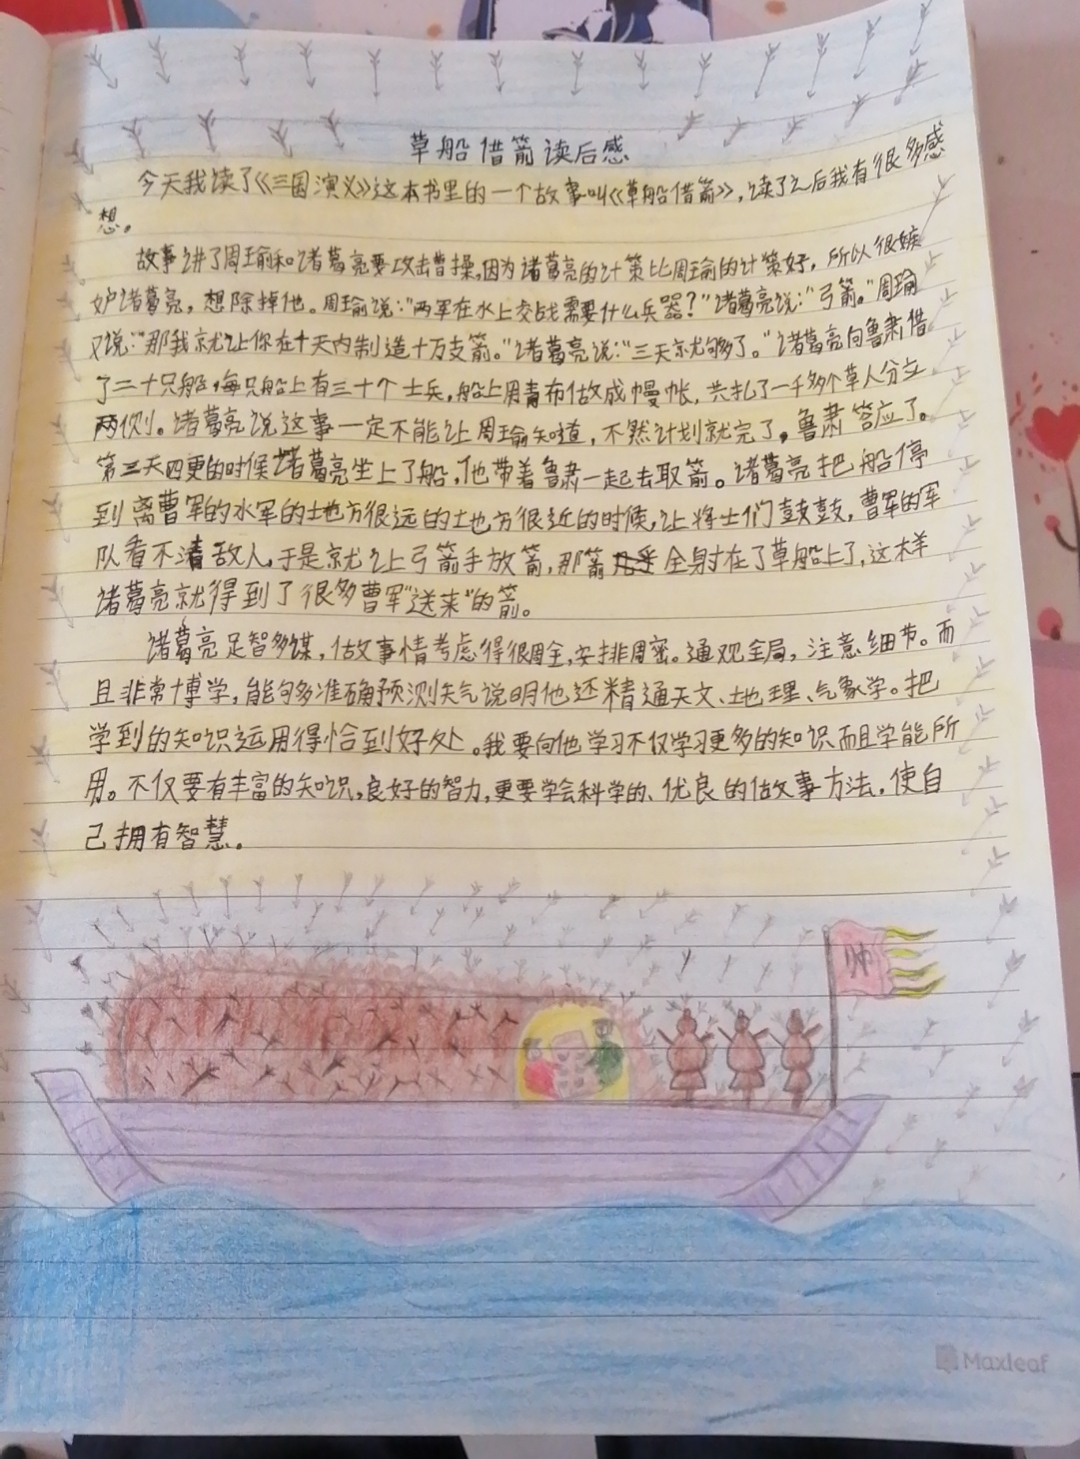 草船借箭读后感
今天我读了《三国演义》这本书里的一个故事叫《草船借箭》，读了之后我有很多感
想。
故事讲了周瑜和诸葛亮要攻击曹操，因为诸葛亮的计策比周瑜的计策好，所以很嫉
妒诸葛亮，想除掉他。周瑜说：“两军在水上交战需要什么兵器？”诸葛亮说：“弓箭。”周瑜
又说：“那我就让你在十天内制造十万支箭。”诸葛亮说：“三天就够了。”诸葛亮向鲁肃借
了二十只船，每只船上有三十个士兵，船上用青布做成幔帐，共扎了一千多个草人分立
两侧。诸葛亮说这事一定不能让周瑜知道，不然计划就完了，鲁肃答应了。
第三天四更的时候诸葛亮坐上了船，他带着鲁肃一起去取箭。诸葛亮把船停
到离曹军的水军的土地方很远的土地方很近的时候，让将士们鼓鼓，曹军的军
队看不清敌人，于是就让弓箭手放箭，那箭全射在了草船上了，这样
诸葛亮就得到了很多曹军“送来”的箭。
诸葛亮足智多谋，做故事情考虑得很周全，安排周密。通观全局，注意细节。而
且非常博学，能够多准确预测天气说明他还精通天文、地理、气象学。把
学到的知识运用得恰到好处。我要向他学习不仅学习更多的知识而且学能所
用。不仅要有丰富的知识，良好的智力，更要学会科学的、优良的做故事方法，使自
己拥有智慧。
帅
Maxleaf